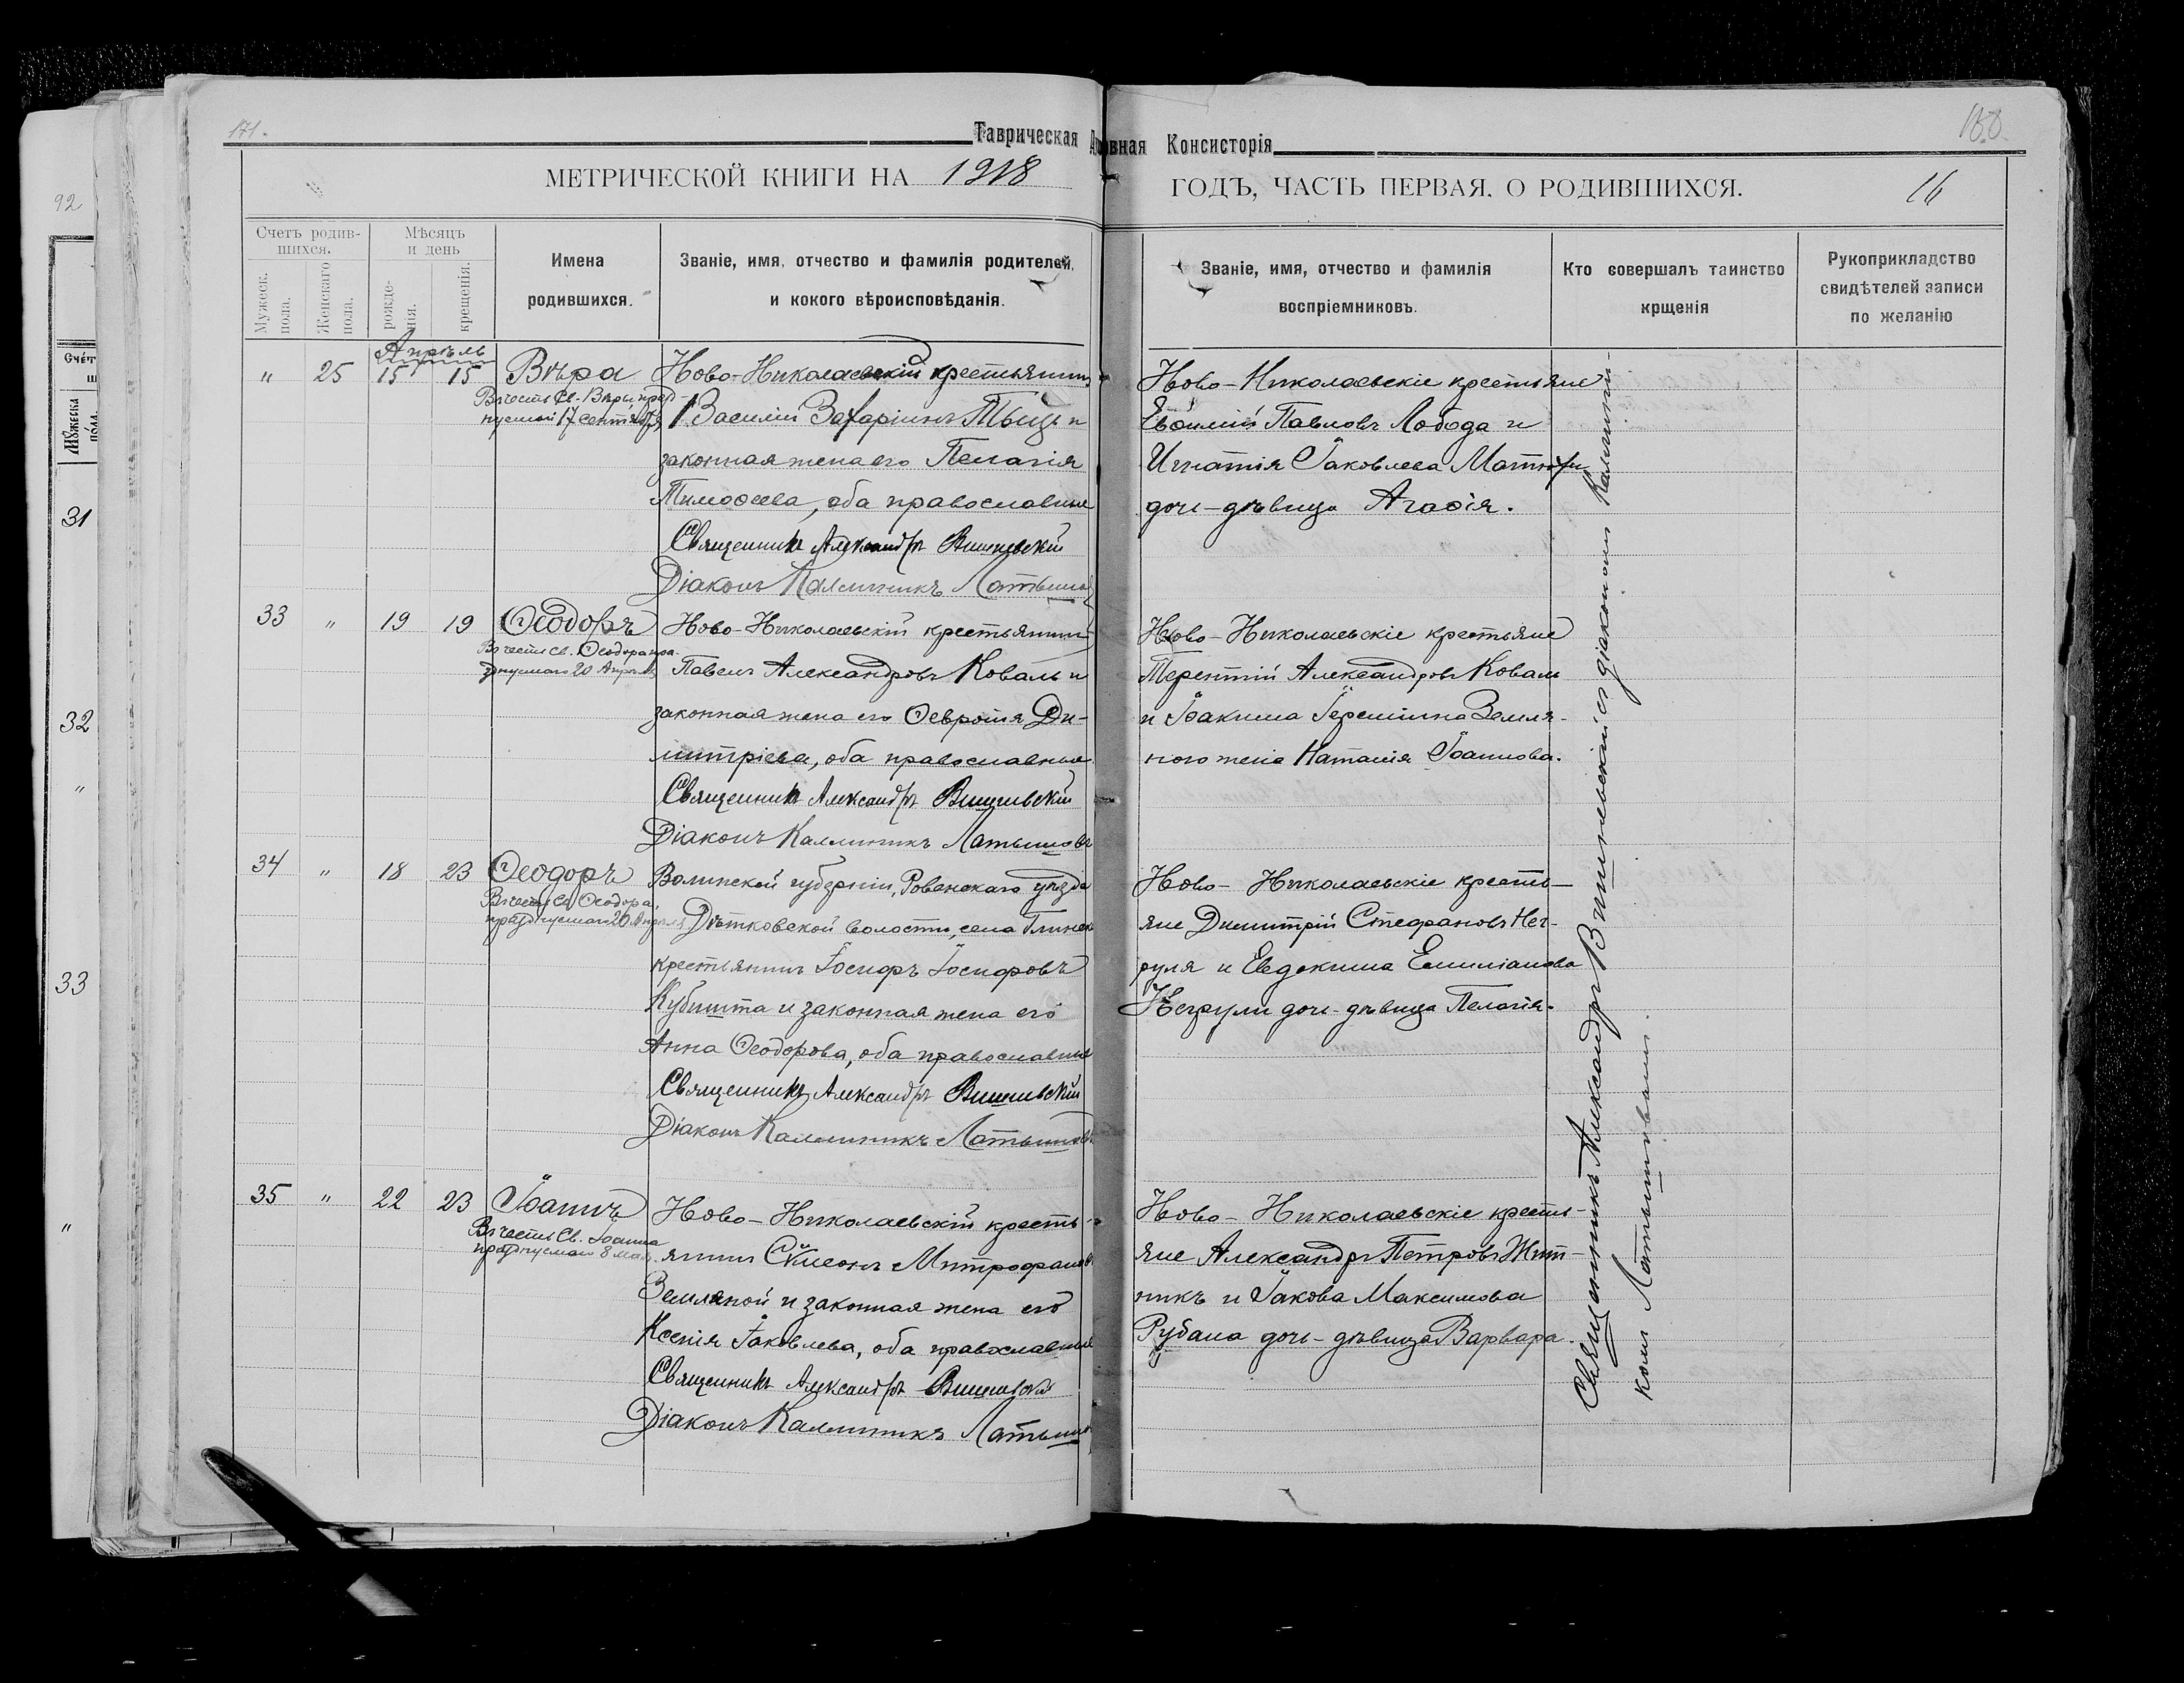 171.
Таврическая Духовная Консисторія
МЕТРИЧЕСКОЙ КНИГИ НА 1918
ГОДЪ, ЧАСТЬ ПЕРВАЯ, О РОДИВШИХСЯ.
16
Счетъ родив-
шихся.
Мужеск.
пола.
Женскаго
пола.
Мѣсяцъ
и день
рожде-
нія.
крещенія.
Имена
родившихся.
Званіе, имя, отчество и фамилія родителей,
и кокого вѣроисповѣданія.
Званіе, имя, отчество и фамилія
воспріемниковъ.
Кто совершалъ таинство
крщенія
Рукоприкладство
свидѣтелей записи
по желанію
Апрѣль
" 25 15 15 Вѣра
Въ честь Св. Вѣры празд-
нуемой 17 сентября
Ново-Николаевскій крестьянинъ
Василій Захаріинъ Тыць и
законная жена его Пелагія
Тимоѳеева, оба православные
Священникъ Александръ Вишневскій
Діаконъ Каллиникъ Латышовъ
Ново-Николаевскіе крестьяне
Евѳимій Павловъ Лобода и
Игнатія Іаковлева Матюхи
дочь-дѣвица Агаѳія.
33 " 19 19 Ѳеодоръ
Въ честь Св. Ѳеодора пра-
зднуемаго 20 Апрѣля
Ново-Николаевскій крестьянинъ
Павелъ Александровъ Коваль и
законная жена его Ѳевронія Ди-
митріева, оба православные
Священникъ Александръ Вишневскій
Діаконъ Каллиникъ Латышовъ
Ново-Николаевскіе крестьяне
Терентій Александровъ Коваль
и Іоакима Іереміина Земля-
ного жена Наталія Іоаннова.
34 " 18 23 Ѳеодоръ
Въ честь Св. Ѳеодора,
празднуемаго 20 Апрѣля
Волынской губерніи, Ровенскаго уѣзда
Дятковской волости, села Глинск
крестьянинъ Іосифъ Іосифовъ
Кубишта и законная жена его
Анна Ѳеодорова, оба православные
Священникъ Александръ Вишневскій
Діаконъ Каллиникъ Латышовъ
Ново-Николаевскіе кресть-
яне Димитрій Стефановъ Нег-
руля и Евдокима Емиліанова
Негрули дочь-дѣвица Пелагія.
35 " 22 23 Іоаннъ
Въ честь Св. Іоанна
празднуемаго 8 мая.
Ново-Николаевскій кресть-
янинъ Сѵмеонъ Митрофановъ
Земляной и законная жена его
Ксенія Іаковлева, оба православные
Священникъ Александръ Вишневскій
Діаконъ Каллиникъ Латышовъ
Ново-Николаевскіе кресть-
яне Александръ Петровъ Жит-
никъ и Іакова Максимова
Рубана дочь-дѣвица Варвара.
Священникъ Александръ Вишневскій съ діакономъ Каллини-
комъ Латышовымъ.
92
Счет
Мужеска
пола.
31
32
"
33
"